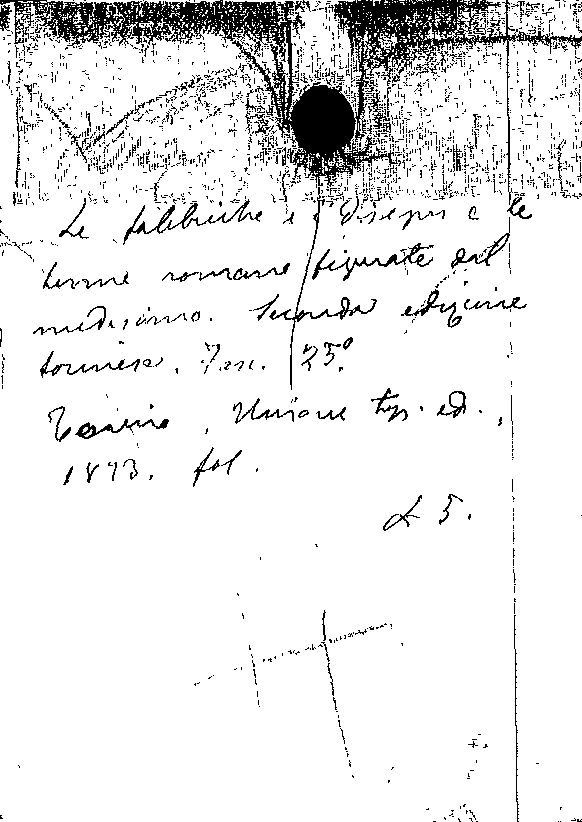 Le fabbriche e i disegni e le
terme romane figurate dal
medesimo. Seconda edizione
torinese. Fasc. 25º
Torino, Unione tip. ed.,
1873. fol.
L 5.